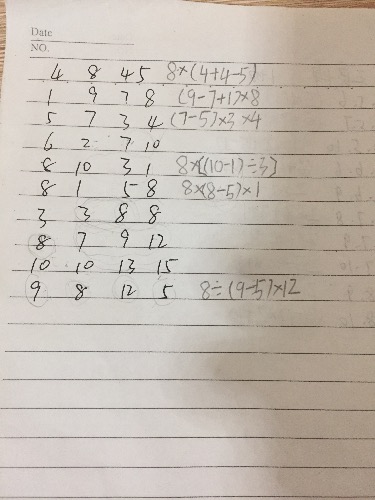 Date
NO.
4 8 4 5 8×(4+4-5)
1 9 7 8 (9-7+1)×8
5 7 3 4 (7-5)×3×4
6 2 7 10
8 10 3 1 8×[(10-1)÷3]
8 1 5 8 8×(8-5)×1
3 3 8 8
8 7 9 12
10 10 13 15
9 8 12 5 8÷(9-5)×12